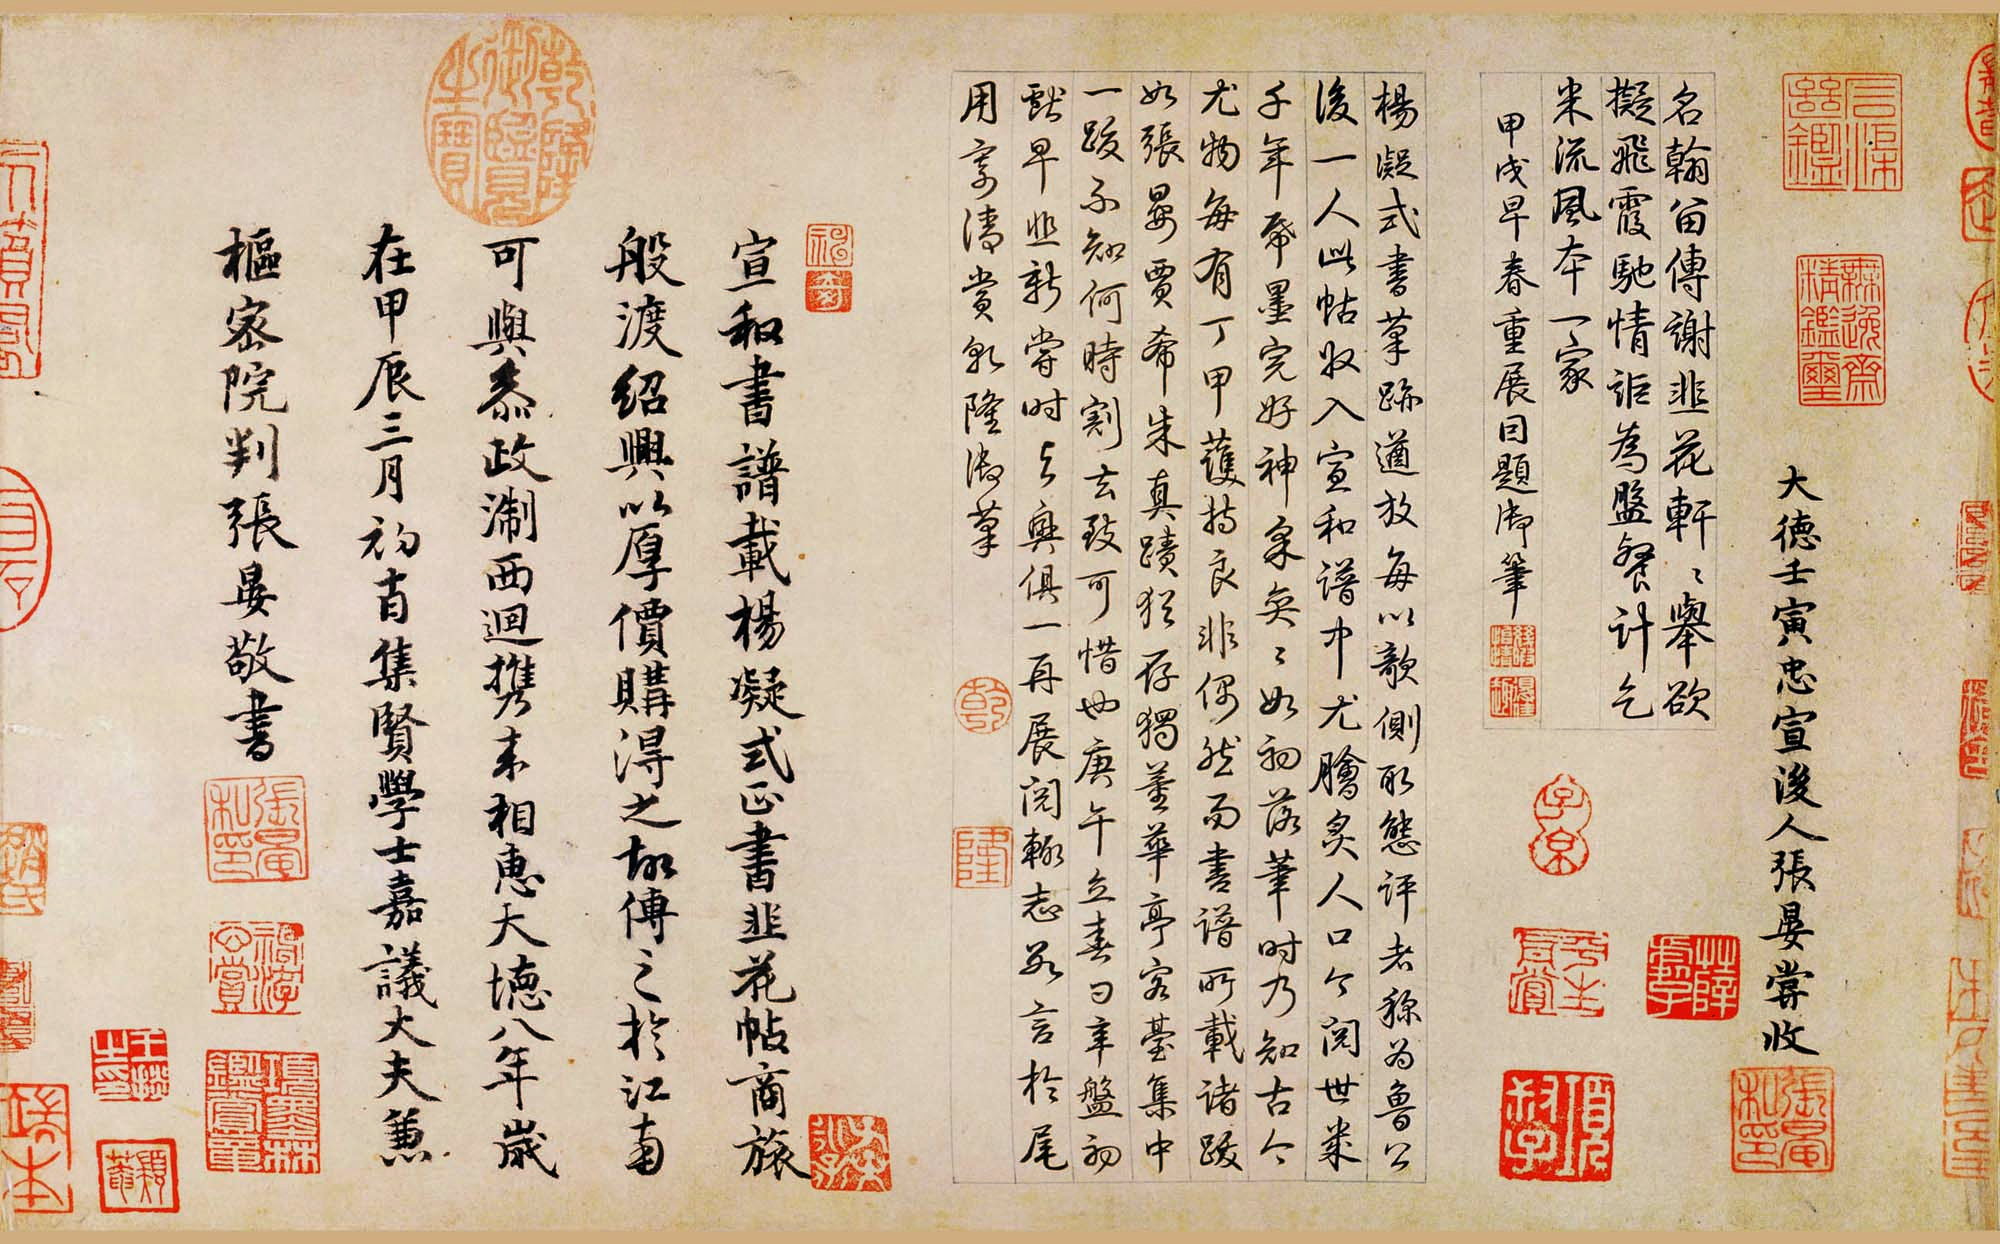 大德壬寅忠宣後人張晏嘗收
名翰留傳謝韭花軒〻舉欲
擬飛霞馳情詎為盤餐計乞
米流風本一家
甲戌早春重展因題御筆
楊凝式書筆跡遒放每以欹側取態評者稱為魯公
後一人此帖收入宣和譜中尤膾炙人口今閱世米
千年縑墨完好神采奕〻如初落筆时乃知古今
尤物每有丁甲護持良非偶然而書譜所載諸跋
如張晏賈希朱真蹟猶存獨董華亭容臺集中
一跋不知何時割去致可惜也庚午立春日辛盤初
獻早韭新嘗时與興俱一再展閱輒志數言於尾
用寄清賞乾隆御筆
宣和書譜載楊凝式正書韭花帖商旅
般渡紹興以厚價購得之故傳之於江南
可與忝政淛西迴携來相惠大德八年歲
在甲辰三月初吉集賢學士嘉議大夫兼
樞密院判張晏敬書
乾隆御覽之寶
三希堂精鑑璽
乾
隆
子京
項叔子
張晏私印
項墨林鑑賞章